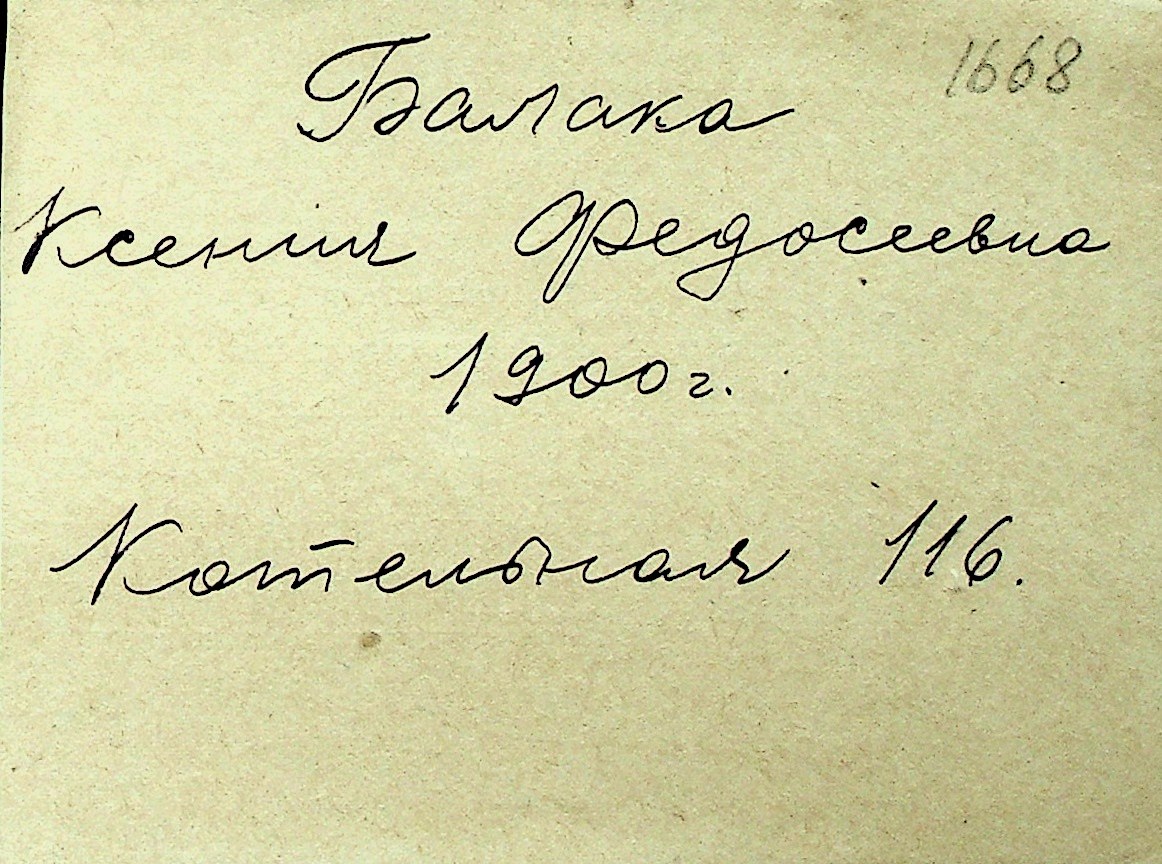 1668
Балака
Ксения Федосеевна
1900г.
Котельная 116.